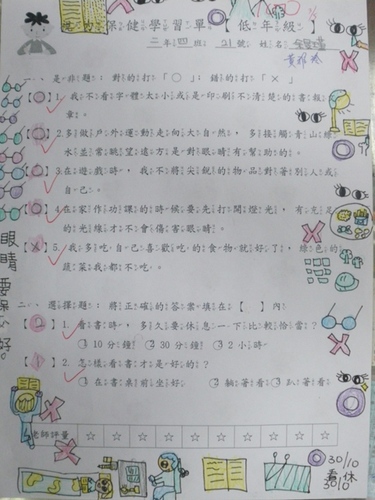 視力保健學習單【低年級】
二年四班：21號，姓名：
一、是非題：對的打「○」；錯的打「×」
【○】1.我不看字體太小或是印刷不清楚的書報
章。
【○】2.多做戶外運動走向大自然，多接觸青山綠
水並常眺望遠方是對眼睛有幫助的。
【○】3.在遊戲時，我不將尖銳的物品對著別人或
自己。
【○】4.在家作功課的時候要先打開燈光，有充足
的光線才不會傷害眼睛。
【×】5.我多吃自己喜歡吃的食物就好了，綠色的
蔬菜我都不吃。
二、選擇題：將正確的答案填在【 】內
【2】1.看書時，多久要休息一下比較恰當？
①10分鐘 ②30分鐘 ③2小時
【1】2.怎樣看書才是好的？
①在書桌前坐好 ②躺著看 ③趴著看
老師評量 ☆ ☆ ☆ ☆ ☆ ☆ ☆ ☆ ☆ ☆
眼睛要保
好
30/10
看休
30 10